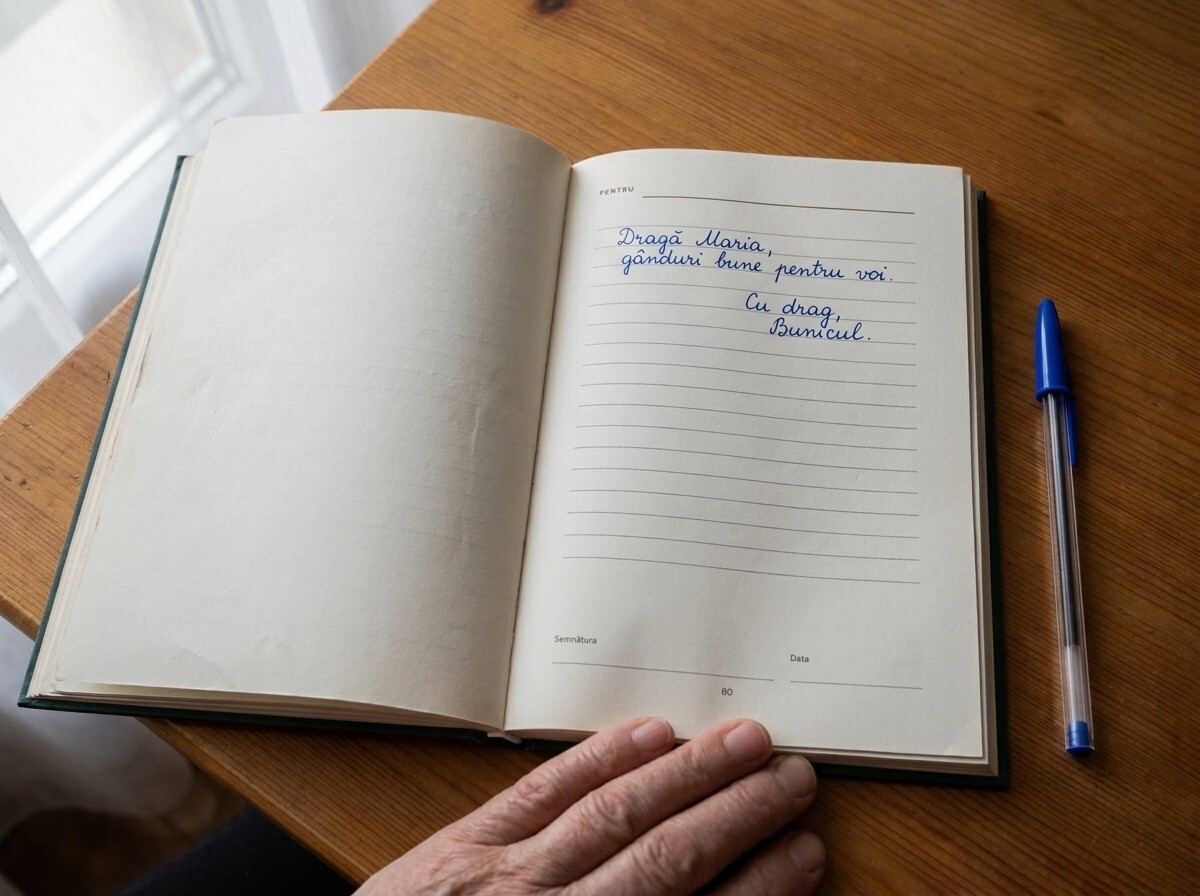 PENTRU
Dragă Maria,
gânduri bune pentru voi.
Cu drag,
Bunicul.
Semnătura
Data
80